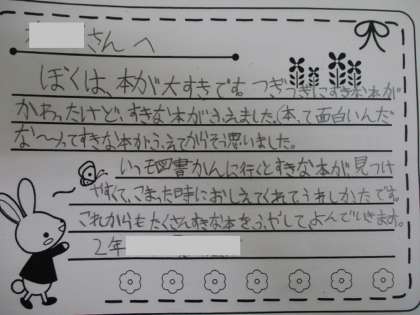 さんへ
ぼくは、本が大すきです。つぎつぎにすきな本が
かわったけど、すきな本がふえました。本って面白いんだ
な〜ってすきな本がふえてからそう思いました。
いつも図書かんに行くとすきな本が見つけ
やすくて、こまった時におしえてくれてうれしかたです。
これからもたくさんすきな本をふやして、よんでいきます。
2年